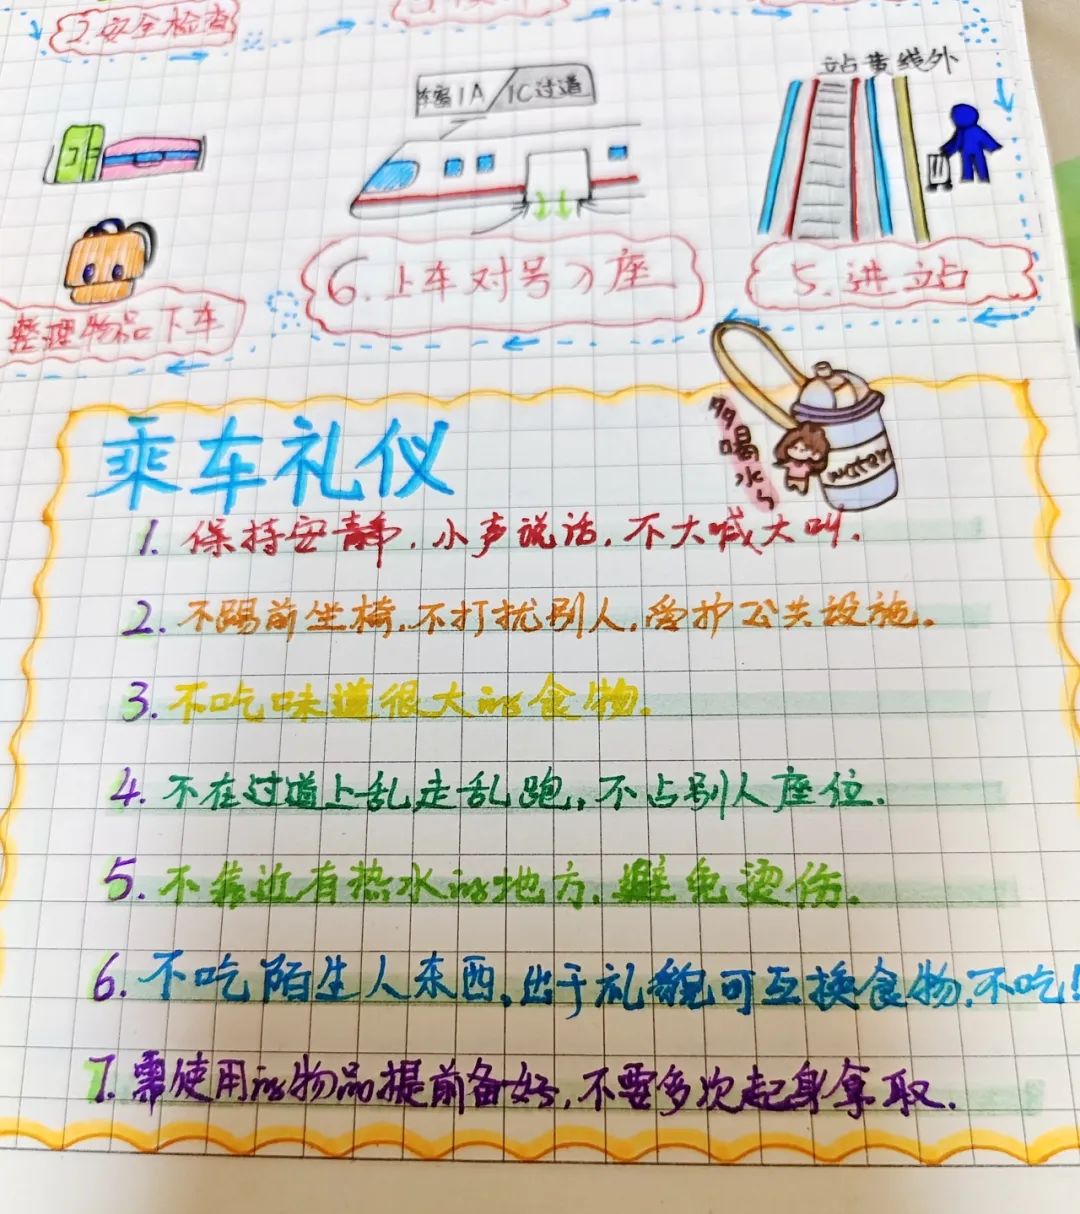 2.安全检查
车窗1A/1C过道
站黄线外
6.上车对号入座
5.进站
整理物品下车
乘车礼仪
多喝水
water
1. 保持安静,小声说话,不大喊大叫.
2. 不踢前坐椅,不打扰别人,爱护公共设施.
3. 不吃味道很大的食物.
4. 不在过道上乱走乱跑,不占别人座位.
5. 不靠近有热水的地方,避免烫伤.
6. 不吃陌生人东西,出于礼貌可互换食物,不吃!
7. 需使用的物品提前备好,不要多次起身拿取.